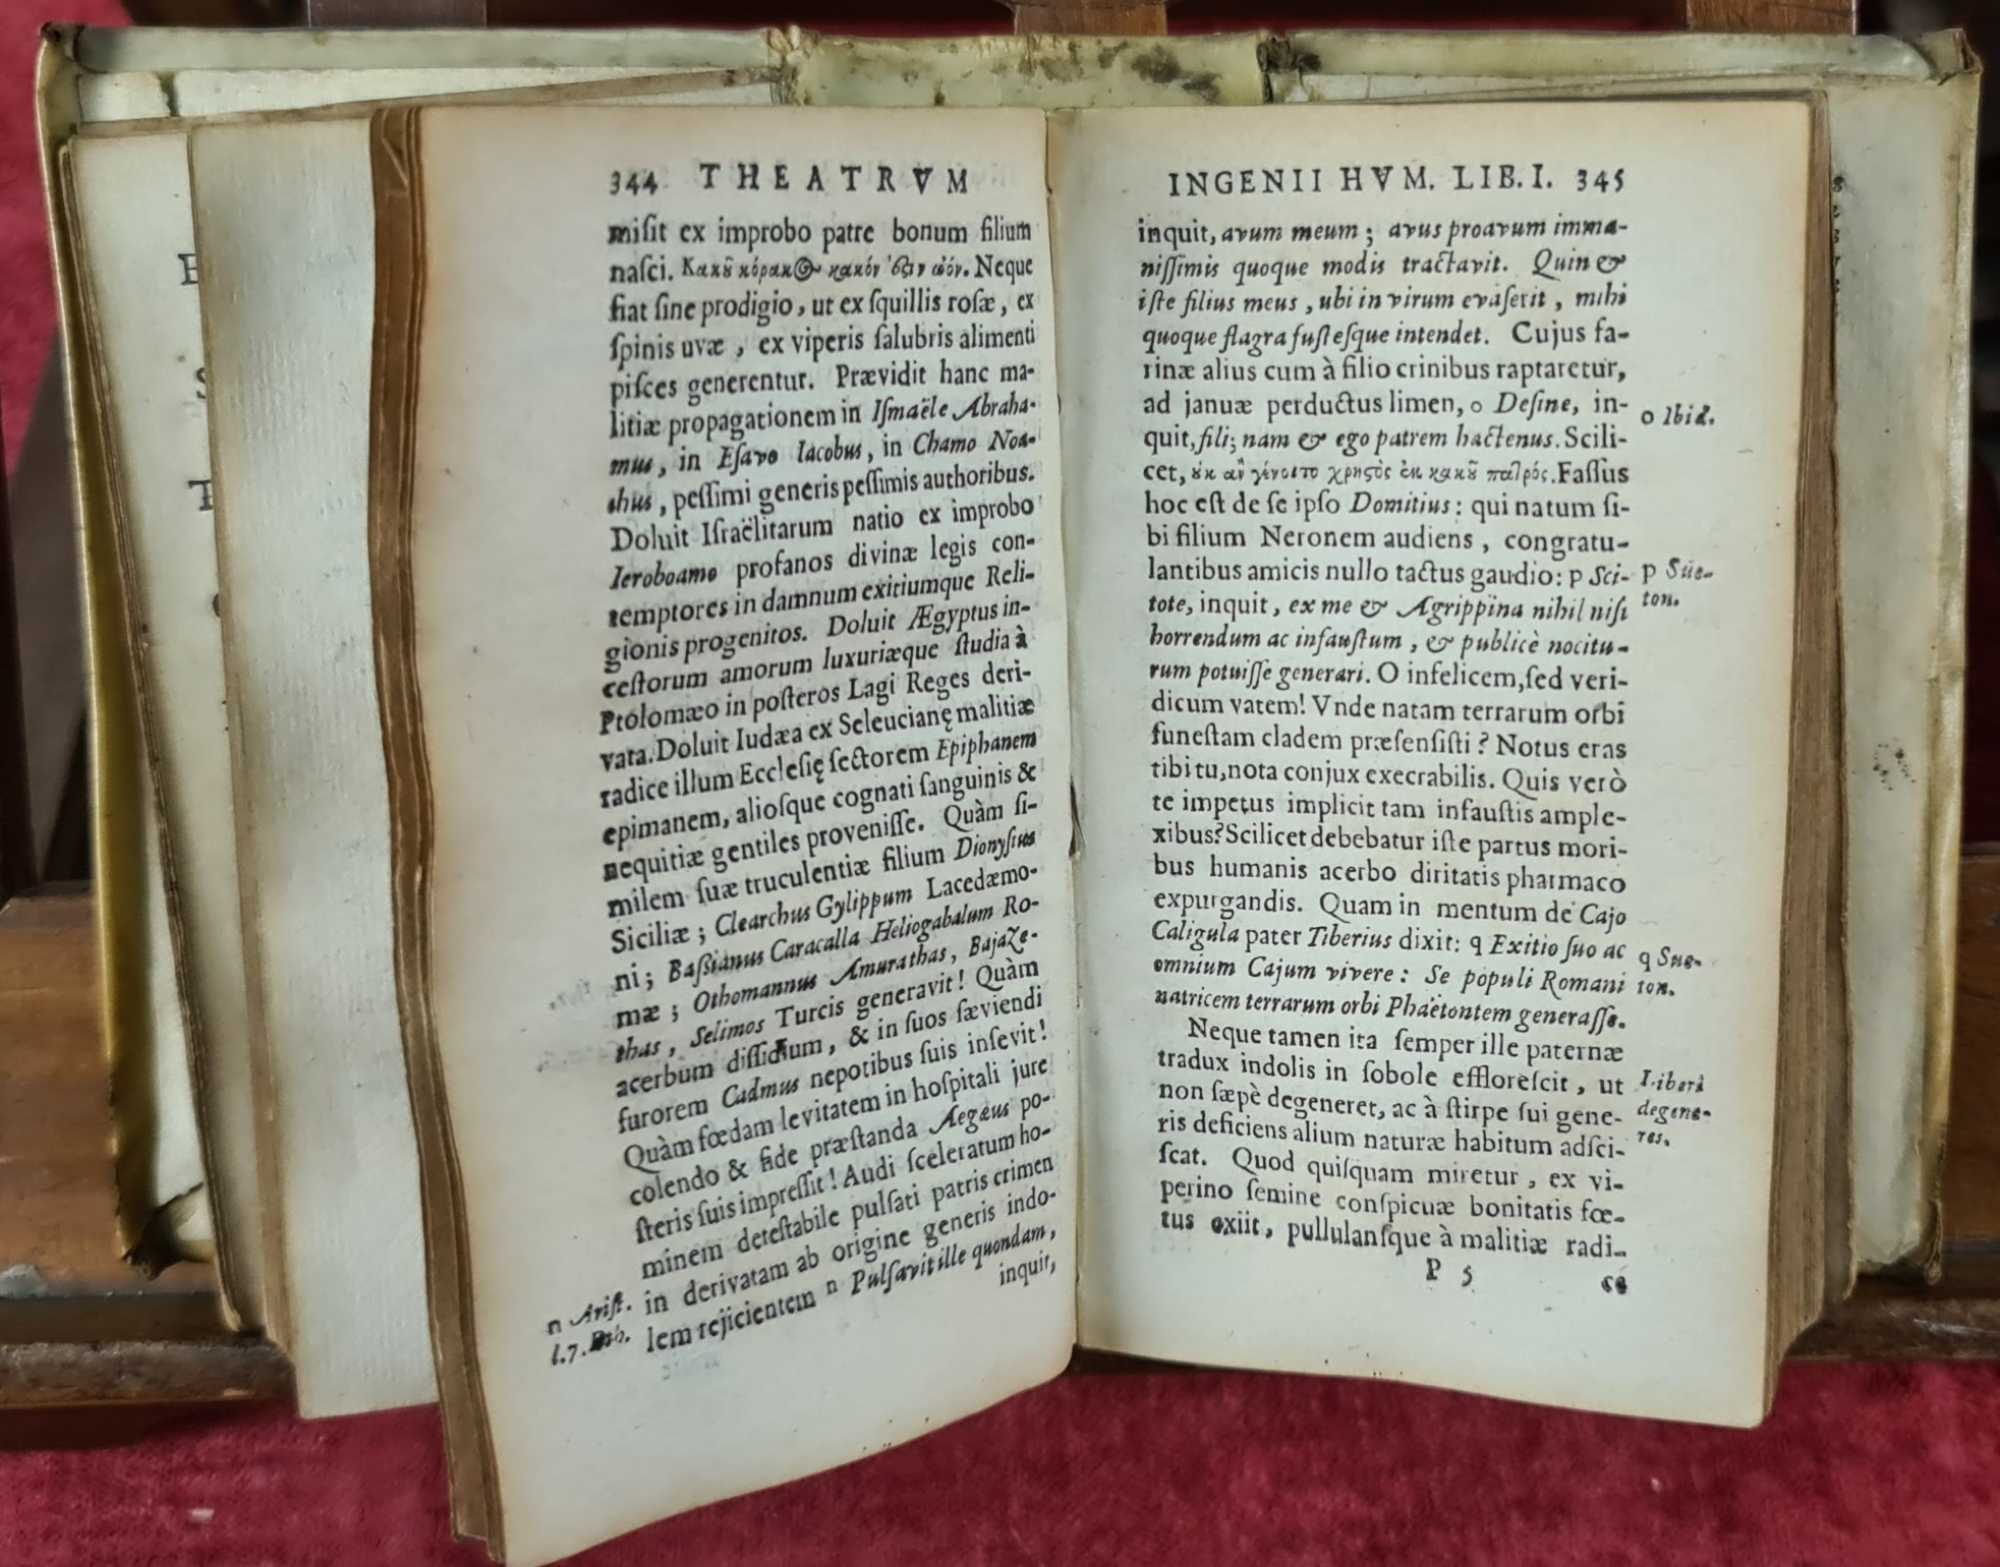 344 THEATRVM
miſit ex improbo patre bonum filium
naſci. Κακȣ̃ κόρακ©- κακόν ἐςιν ὠόν. Neque
fiat ſine prodigio, ut ex ſquillis roſæ, ex
ſpinis uvæ, ex viperis ſalubris alimenti
piſces generentur. Prævidit hanc ma-
litiæ propagationem in Iſmaële Abraha-
mus, in Eſavo Iacobus, in Chamo Noa-
chus, peſſimi generis peſſimis authoribus.
Doluit Iſraëlitarum natio ex improbo
Ieroboamo profanos divinæ legis con-
temptores in damnum exitiumque Reli-
gionis progenitos. Doluit Ægyptus in-
ceſtorum amorum luxuriæque ſtudia à
Ptolomæo in poſteros Lagi Reges deri-
vata. Doluit Iudæa ex Seleucianę malitiæ
radice illum Eccleſię ſectorem Epiphanem
epimanem, alioſque cognati ſanguinis &
nequitiæ gentiles proveniſſe. Quàm ſi-
milem ſuæ truculentiæ filium Dionyſius
Siciliæ; Clearchus Gylippum Lacedæmo-
ni; Baſſianus Caracalla Heliogabalum Ro-
mæ; Othomannus Amurathas, Bajaze-
thas, Selimos Turcis generavit! Quàm
acerbum diſſidium, & in ſuos ſæviendi
furorem Cadmus nepotibus ſuis inſevit!
Quàm fœdam levitatem in hoſpitali jure
colendo & fide præſtanda Aegæus po-
ſteris ſuis impreſſit! Audi ſceleratum ho-
minem deteſtabile pulſati patris crimen
in derivatam ab origine generis indo-
lem rejicientem n Pulſavit ille quondam,
inquit,
n Ariſt.
l.7.
INGENII HVM. LIB. I. 345
inquit, avum meum; avus proavum imma-
niſſimis quoque modis tractavit. Quin &
iſte filius meus, ubi in virum evaſerit, mihi
quoque flagra fuſteſque intendet. Cujus fa-
rinæ alius cum à filio crinibus raptaretur,
ad januæ perductus limen, o Deſine, in-
quit, fili; nam & ego patrem hactenus. Scili-
cet, ȣκ ἂν γένοιτο χρηςὸς ἐκ κακȣ̃ πατρός. Faſſùs
hoc eſt de ſe ipſo Domitius: qui natum ſi-
bi filium Neronem audiens, congratu-
lantibus amicis nullo tactus gaudio: p Sci-
tote, inquit, ex me & Agrippina nihil niſi
horrendum ac infauſtum, & publicè nocitu-
rum potuiſſe generari. O infelicem, ſed veri-
dicum vatem! Vnde natam terrarum orbi
funeſtam cladem præſenſiſti? Notus eras
tibi tu, nota conjux execrabilis. Quis verò
te impetus implicit tam infauſtis ample-
xibus? Scilicet debebatur iſte partus mori-
bus humanis acerbo diritatis pharmaco
expurgandis. Quam in mentum de Cajo
Caligula pater Tiberius dixit: q Exitio ſuo ac
omnium Cajum vivere: Se populi Romani
natricem terrarum orbi Phaëtontem generaſſe.
Neque tamen ita ſemper ille paternæ
tradux indolis in ſobole effloreſcit, ut
non ſæpè degeneret, ac à ſtirpe ſui gene-
ris deficiens alium naturæ habitum adſci-
ſcat. Quod quiſquam miretur, ex vi-
perino ſemine conſpicuæ bonitatis fœ-
tus exiit, pullulanſque à malitiæ radi-
P 5 ce
o Ibid.
p Sue-
ton.
q Sue-
ton.
Liberi
degene-
res.